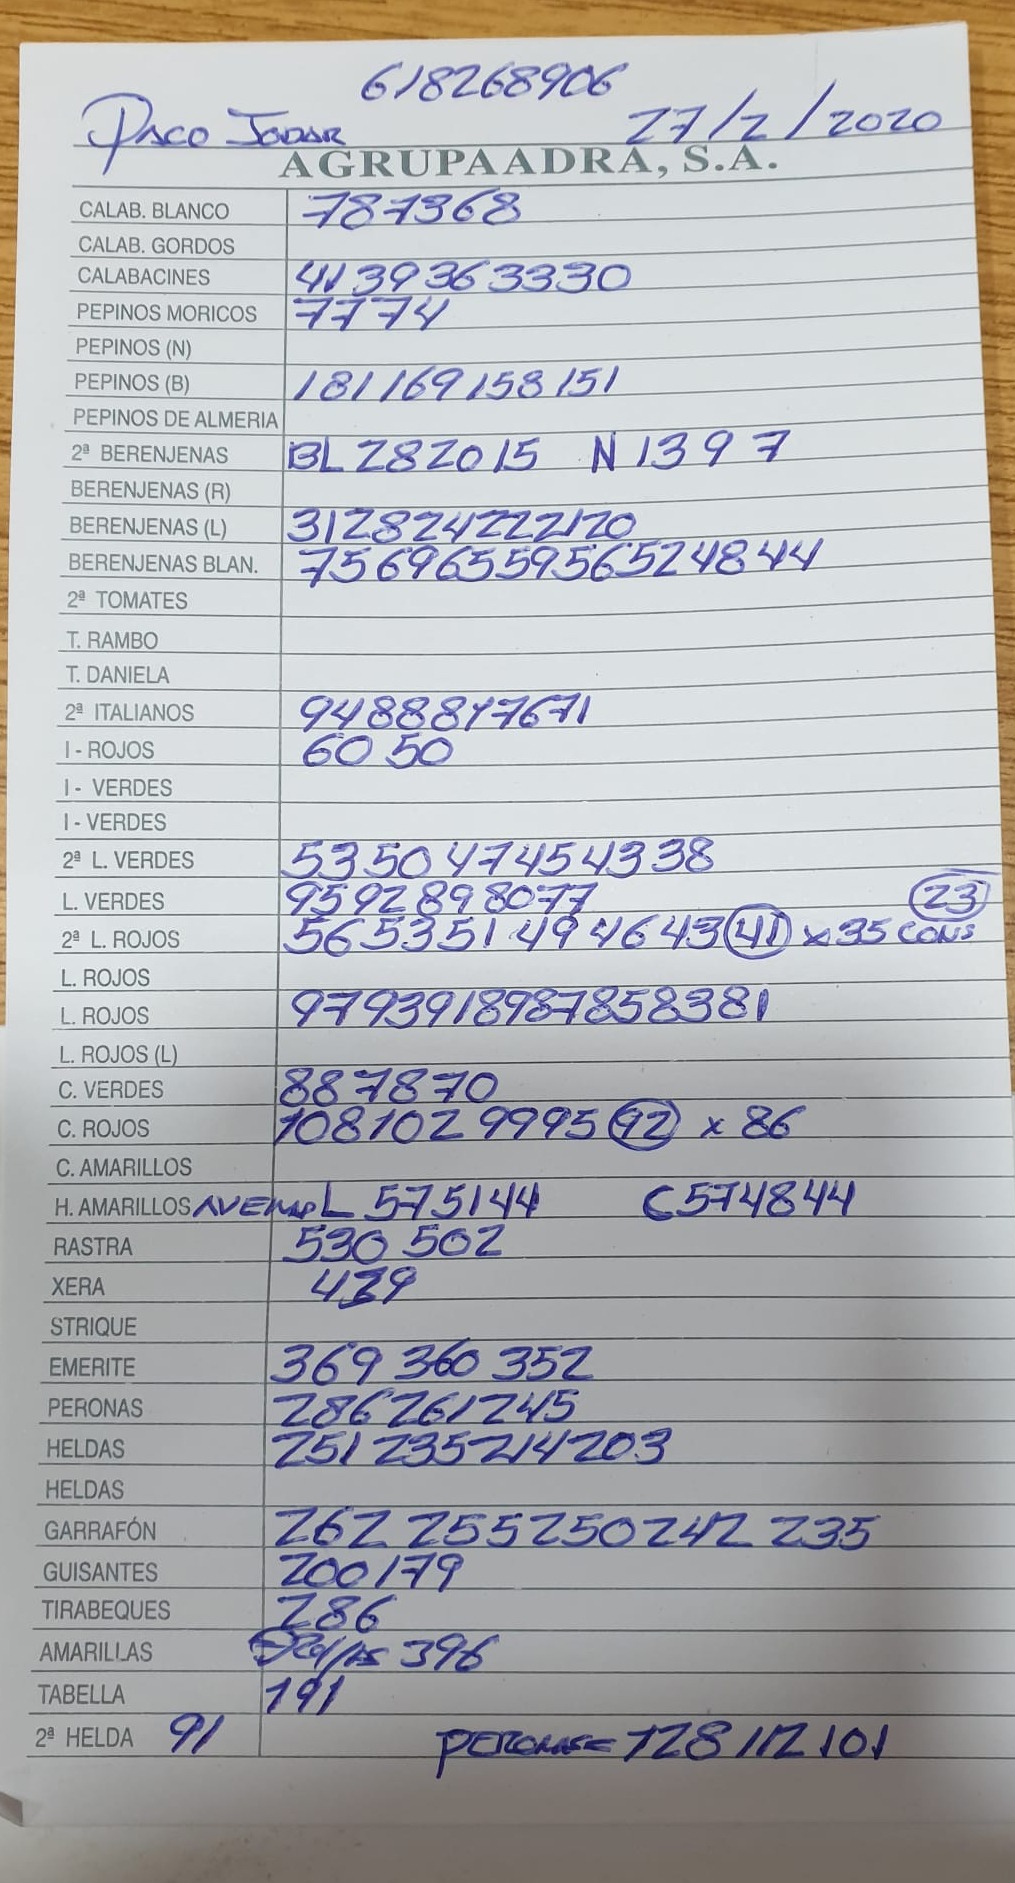 618268906
Paco Jodar 27/2/2020
AGRUPAADRA, S.A.
CALAB. BLANCO 787368
CALAB. GORDOS
CALABACINES 4139363330
PEPINOS MORICOS 7774
PEPINOS (N)
PEPINOS (B) 181169158151
PEPINOS DE ALMERIA
2ª BERENJENAS BL 282015 N 1397
BERENJENAS (R)
BERENJENAS (L) 312824222120
BERENJENAS BLAN. 7569655956524844
2ª TOMATES
T. RAMBO
T. DANIELA
2ª ITALIANOS 9488817671
I - ROJOS 60 50
I - VERDES
I - VERDES
2ª L. VERDES 535047454338
L. VERDES 9592898077 23
2ª L. ROJOS 56535149464341 x 35 CONS
L. ROJOS
L. ROJOS 9793918987858381
L. ROJOS (L)
C. VERDES 887870
C. ROJOS 108102999592 x 86
C. AMARILLOS
H. AMARILLOS L 575144 C 574844
RASTRA 530 502
XERA 439
STRIQUE
EMERITE 369 360 352
PERONAS 286261245
HELDAS 251235214203
HELDAS
GARRAFÓN 262 255250242 235
GUISANTES 200179
TIRABEQUES 286
AMARILLAS 396
TABELLA 191
2ª HELDA 91 128 112 101